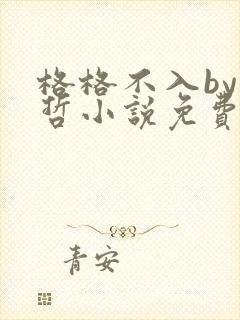 格格不入by
哲小說免費
青安